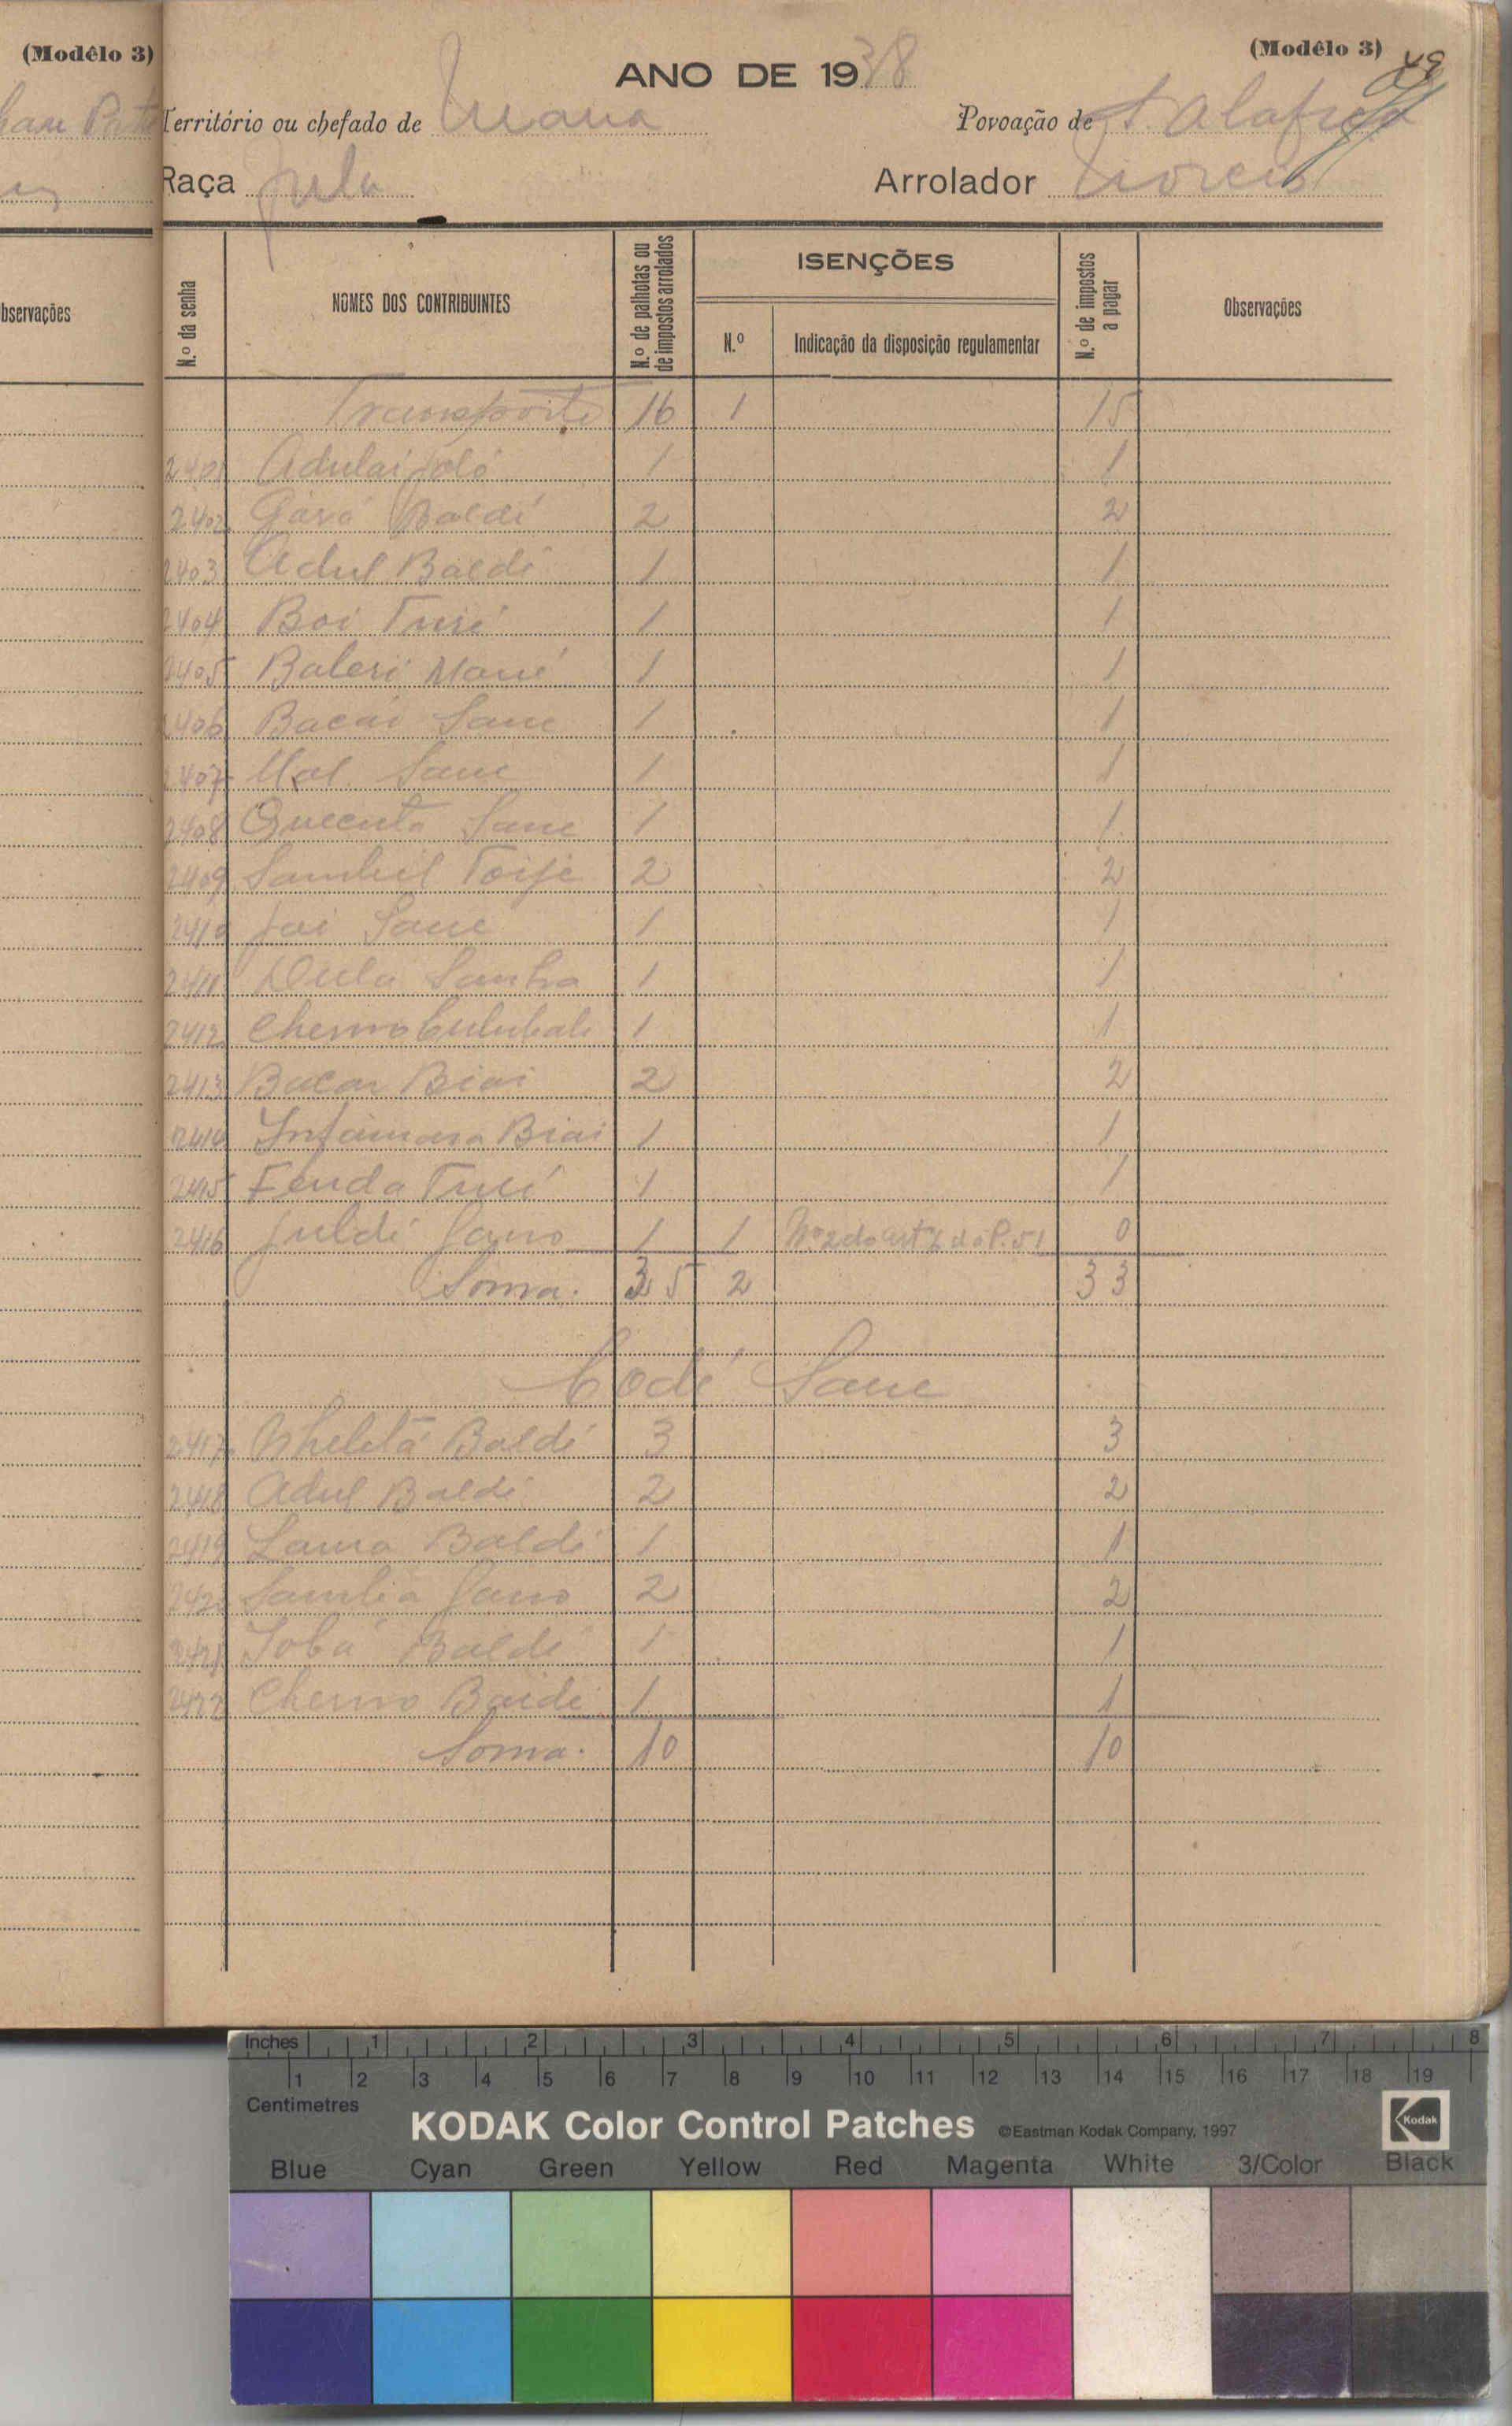 (Modêlo 3)
bservações
(Modêlo 3)
49
ANO DE 1938
Território ou chefado de Mana
Povoação de
Raça fula
Arrolador
N.º da senha
NOMES DOS CONTRIBUINTES
N.º de palhotas ou de impostos arrolados
ISENÇÕES
N.º
Indicação da disposição regulamentar
N.º de impostos a pagar
Observações
Transporte 16 1 15
2401 Adulai Jaló 1 1
2402 Gáró Baldé 2 2
2403 Adul Baldé 1 1
2404 Boi Turé 1 1
2405 Baleri Mané 1 1
2406 Bacai Sane 1 1
2407 Mal Sane 1 1
2408 Quecuta Sane 1 1
2409 2 2
2410 Jai Sane 1 1
2411 Dula Sanha 1 1
2412 Cherno Culubali 1 1
2413 Bacar Biai 2 2
2414 Infamara Biai 1 1
2415 Fenda Turé 1 1
2416 Juldé Jano 1 1 Nº 2 do artº 2 do P. 51 0
Soma. 35 2 33
Codé Sane
2417 Baldé 3 3
2418 Adul Baldé 2 2
2419 Laura Baldé 1 1
242 Samba Jano 2 2
2421 Iobá Baldé 1 1
2422 Cherno Baide 1 1
Soma. 10 10
Inches 1 2 3 4 5 6 7 8
1 2 3 4 5 6 7 8 9 10 11 12 13 14 15 16 17 18 19
Centimetres
KODAK Color Control Patches ©Eastman Kodak Company, 1997
Kodak
Blue Cyan Green Yellow Red Magenta White 3/Color Black